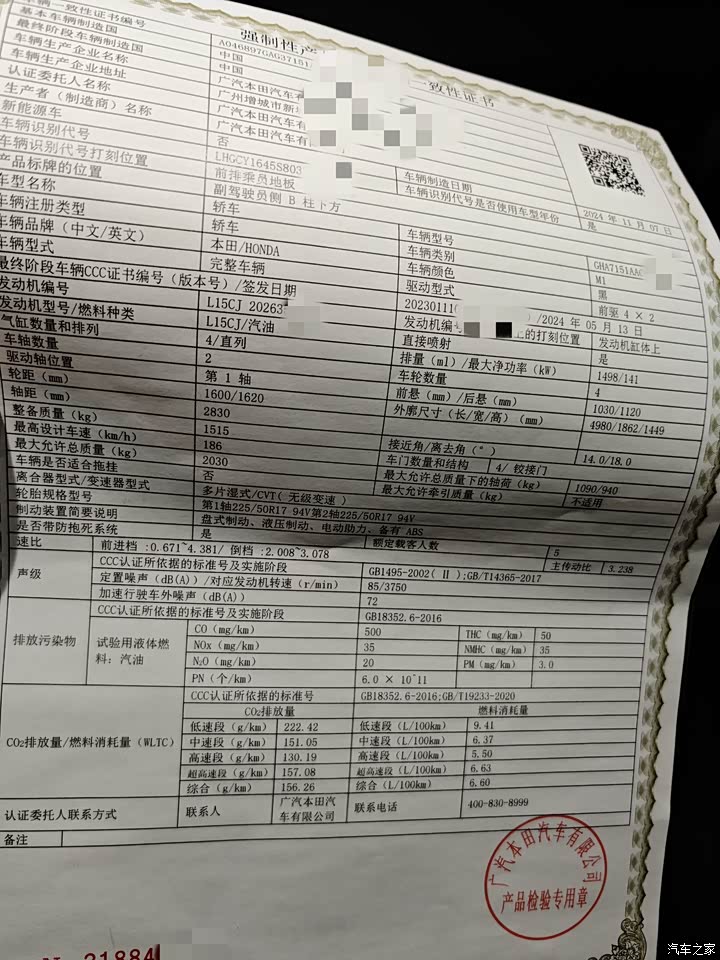 车辆一致性证书编号
强制性产
一致性证书
基本车辆制造国 A046897GAG37151
最终阶段车辆制造国 中国
车辆生产企业名称 中国
车辆生产企业地址 广汽本田汽车有
认证委托人名称 广州增城市新
生产者（制造商）名称 广汽本田汽车有
新能源车 广汽本田汽车有
车辆识别代号 否 车辆制造日期 2024 年 11 月 07 日
车辆识别代号打刻位置 LHGCY1645S803 车辆识别代号是否使用车型年份 是
产品标牌的位置 前排乘员地板
车型名称 副驾驶员侧 B 柱下方
车辆注册类型 轿车 车辆型号 GHA7151AA
车辆品牌（中文/英文） 轿车 车辆类别 M1
车辆型式 本田/HONDA 车辆颜色 黑
完整车辆 驱动型式 前驱 4 × 2
最终阶段车辆CCC证书编号（版本号）/签发日期 20230111 )/2024 年 05 月 13 日
发动机编号 L15CJ 20263 发动机编 的打刻位置 发动机缸体上
发动机型号/燃料种类 L15CJ/汽油 直接喷射 是
气缸数量和排列 4/直列 排量（ml）/最大净功率（kW） 1498/141
车轴数量 2 车轮数量 4
驱动轴位置 第 1 轴 前悬（mm）/后悬（mm） 1030/1120
轮距（mm） 1600/1620 外廓尺寸（长/宽/高）（mm） 4980/1862/1449
轴距（mm） 2830
整备质量（kg） 1515 接近角/离去角（°） 14.0/18.0
最高设计车速（km/h） 186 车门数量和结构 4/ 铰接门
最大允许总质量（kg） 2030 最大允许总质量下的轴荷（kg） 1090/940
车辆是否适合拖挂 否 最大允许牵引质量（kg） 不适用
离合器型式/变速器型式 多片湿式/CVT( 无级变速 )
轮胎规格型号 第1轴225/50R17 94V第2轴225/50R17 94V
制动装置简要说明 盘式制动、液压制动、电动助力、备有 ABS
是否带防抱死系统 是 额定载客人数 5
速比 前进档 :0.671~4.381/ 倒档 :2.008~3.078 主传动比 3.238
声级 CCC认证所依据的标准号及实施阶段 GB1495-2002( Ⅱ );GB/T14365-2017
定置噪声（dB(A)）/对应发动机转速（r/min） 85/3750
加速行驶车外噪声（dB(A)） 72
排放污染物 CCC认证所依据的标准号及实施阶段 GB18352.6-2016
试验用液体燃料：汽油 CO（mg/km） 500 THC（mg/km） 50
NOx（mg/km） 35 NMHC（mg/km） 35
N₂O（mg/km） 20 PM（mg/km） 3.0
PN（个/km） 6.0 × 10^11
CO₂排放量/燃料消耗量（WLTC） CCC认证所依据的标准号 GB18352.6-2016;GB/T19233-2020
CO₂排放量 燃料消耗量
低速段（g/km） 222.42 低速段（L/100km） 9.41
中速段（g/km） 151.05 中速段（L/100km） 6.37
高速段（g/km） 130.19 高速段（L/100km） 5.50
超高速段（g/km） 157.08 超高速段（L/100km） 6.63
综合（g/km） 156.26 综合（L/100km） 6.60
认证委托人联系方式 联系人 广汽本田汽车有限公司 联系电话 400-830-8999
备注
广汽本田汽车有限公司
产品检验专用章
21884
汽车之家